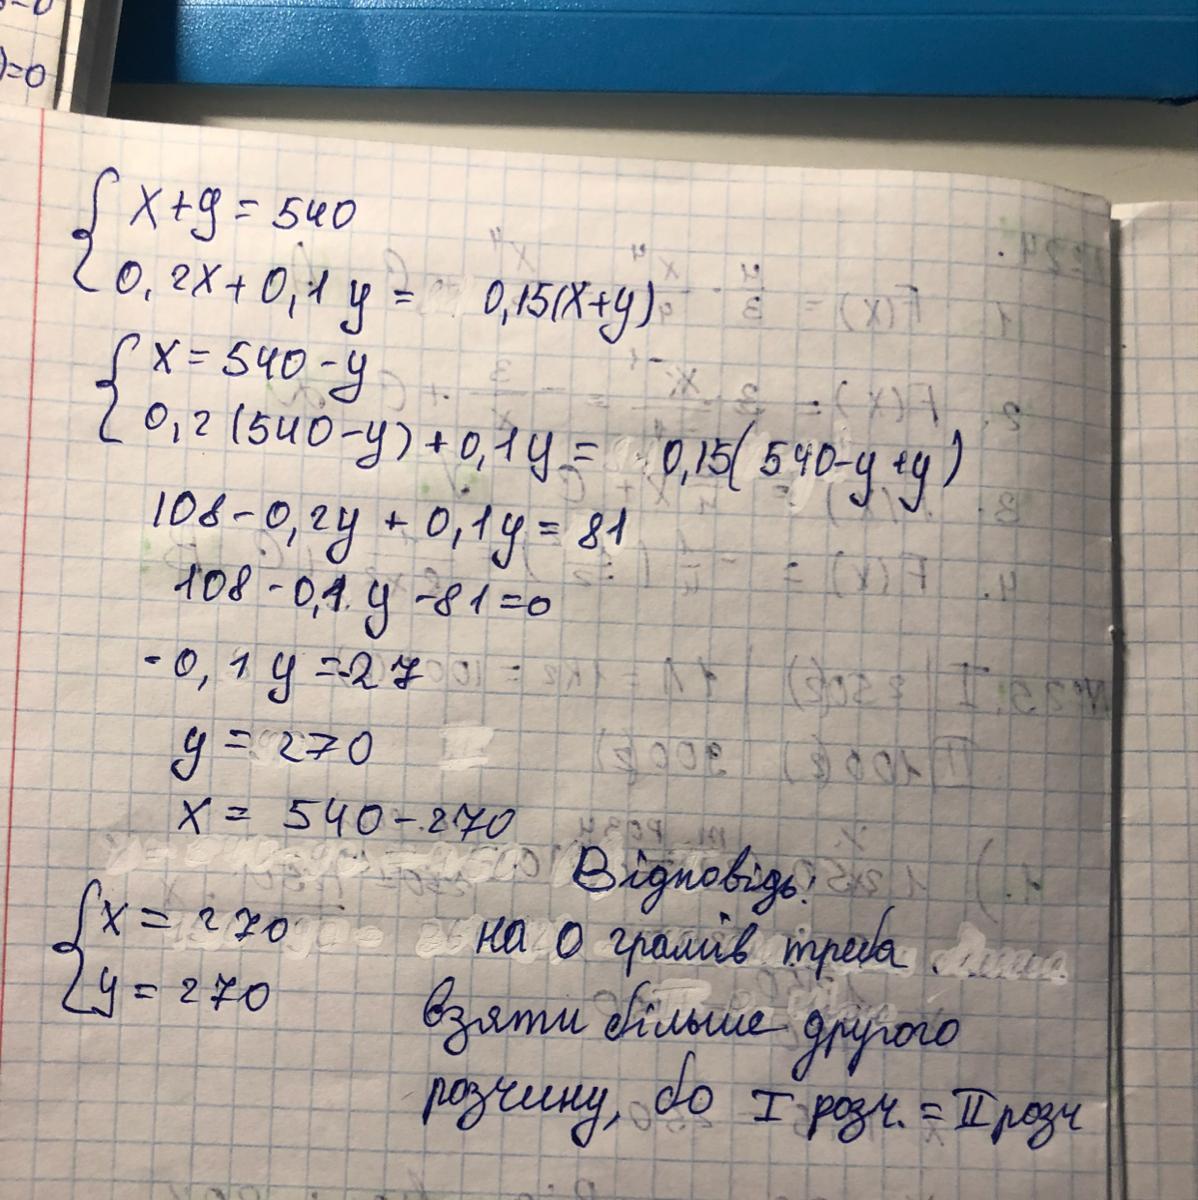 x+y = 540
0,2x+0,1y = 0,15(x+y)
x = 540-y
0,2(540-y)+0,1y = 0,15(540-y+y)
108-0,2y+0,1y = 81
108-0,1y-81=0
-0,1y=-27
y = 270
x = 540-270
x = 270
y = 270
Відповідь:
на 0 грамів треба
взяти більше другого
розчину, бо I розч. = II розч